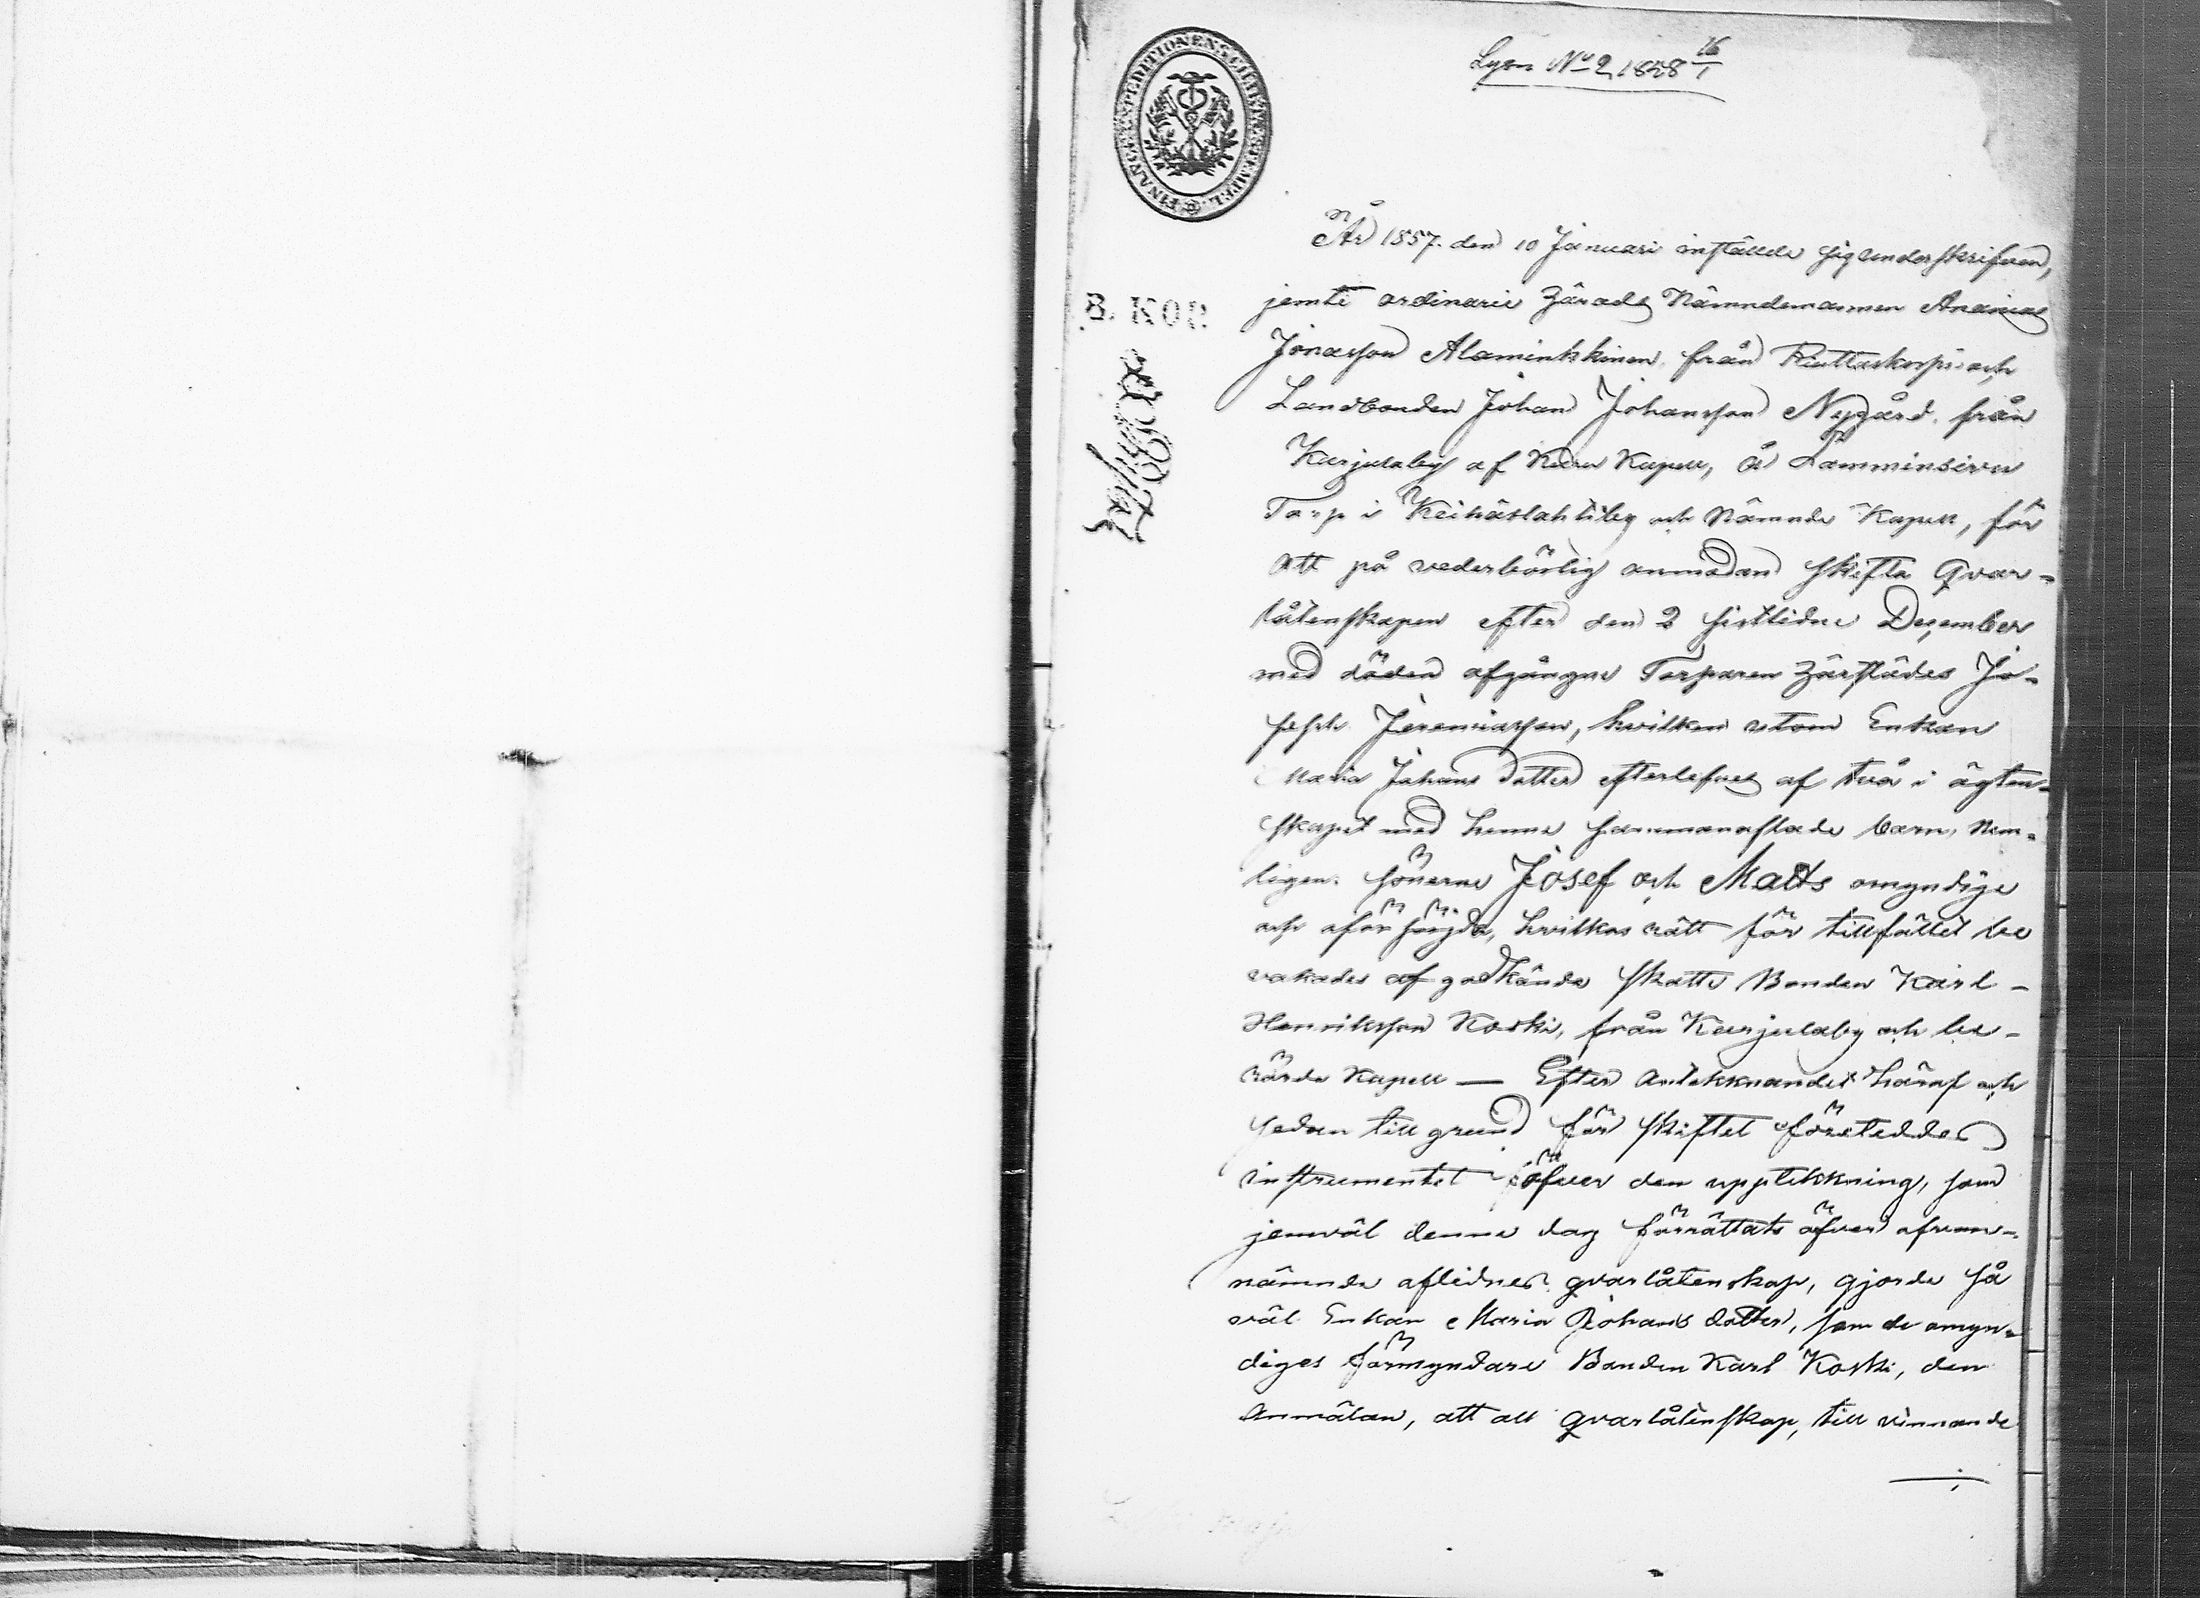 Lysn No 2, 1858 16/1
FINANS EXPEDITIONENS CHARTÆ STEMPEL
B. KOP.
År 1857. den 10 Januari instälde sig undorskrifven,
jemte ordinarie Härads Nämndemannen Ananias
Jonasson Alaminkkinen från Riuttaskorpi och
Landbonden Johan Johansson Nygård, från
Karjulaby af Kuru Kapell, å Lamminsivu
Torp i Keihäslahtiby och Nämnde Kapell, för
att på vederbörlig anmodan skifta Qvar-
låtenskapen efter den 2 sistlidne December
med döden afgångne Torparen härstädes Jo-
seph Jeremiasson, hvilken utom Enkan
Maria Johans dotter efterlefves af två i ägten-
skapet med henne sammanaflade barn, nem-
ligen. sönerne Josef och Matts omyndige
och oförsörjda, hvilkas rätt för tillfället be
vakades af godkände Skatte Bonden Karl
Henriksson Koski, från Karjulaby och be-
rörde Kapell — Efter antekknandet häraf och
sedan till grund för skiftet företeddes
instrumentet öfver den upptekkning, som
jemväl denna dag förrättats öfver ofvan-
nämnde aflidnes qvarlåtenskap, gjorde så
väl Enkan Maria Johans dotter, som de omyn-
diges förmyndare Bonden Karl Koski, den
anmälan, att all qvarlåtenskap, till vinnande